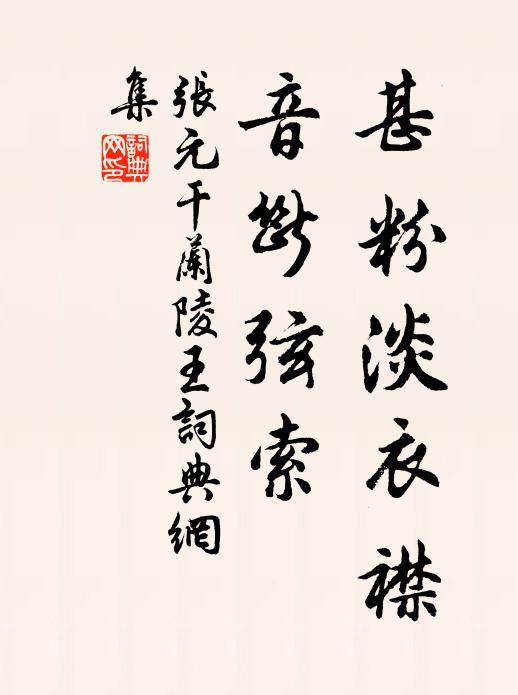 甚粉淡衣襟
音斷弦索
張元干蘭陵王詞典網
集
詞典
網印